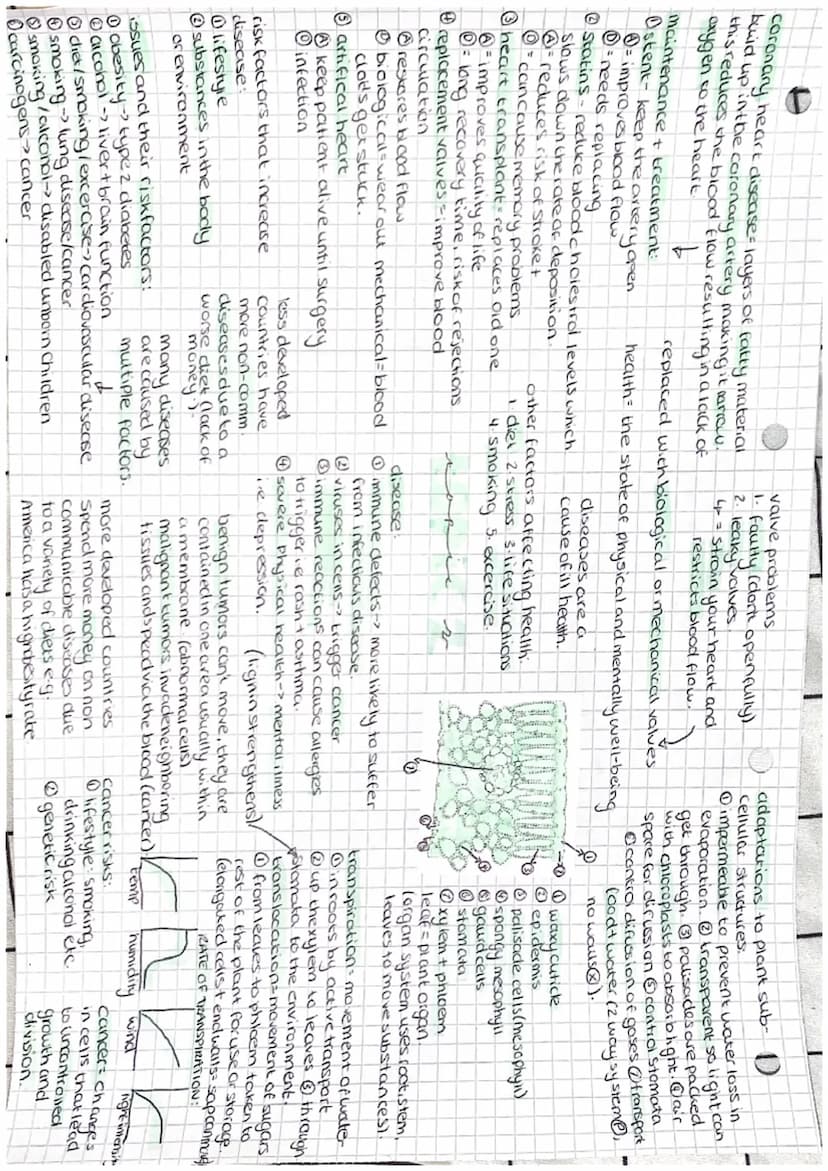 coronary heart disease = layers of fatty material
build up in the coronary artery making it narrow.
this reduces the blood flow resulting in a lack of
oxygen so the heart.
maintenance + treatment:
① stent - keep the artery open
Ⓐ = improves blood flow
Ⓓ = needs replacing
② statins - reduce blood cholesterol levels which
slows down the rate of deposition.
Ⓐ = reduces risk of stroke +
Ⓓ = can cause memory problems
③ heart transplant = replaces old one
Ⓐ = improves quality of life
Ⓓ = long recovery time, risk of rejections
④ replacement valves = improve blood
circulation
Ⓐ restores blood flow
Ⓓ biological = wear out mechanical = blood
clots get stuck.
⑤ artificial heart
Ⓐ keep patient alive until surgery
Ⓓ infection
risk factors that increase
disease:
① lifestyle
② substances in the body
or environment
less developed
countries have
more non-comm.
diseases due to a
worse diet (lack of
money.)
issues and their risk factors:
① obesity → type 2 diabetes
② alcohol → liver + brain function
③ diet/smoking/excercise → cardiovascular disease
④ smoking → lung disease/cancer
⑤ smoking/alcohol → disabled unborn children
⑥ carcinogens → cancer
many diseases
are caused by
multiple factors.
valve problems
1. faulty (don't open fully)
2. leaky valves
= strain your heart and
restricts blood flow.
replaced with biological or mechanical valves
health = the state of physical and mentally well-being
diseases are a
cause of ill health.
other factors affecting health:
1. diet 2. stress 3. life situations
4. smoking 5. excercise.
disease:
① immune defects → more likely to suffer
from infectious disease.
② viruses in cells → trigger cancer
③ immune reactions can cause allergies
to trigger i.e rash + asthma.
④ severe physical health → mental illness
i.e depression.
(lignin strengthens)
benign tumors can't move, they are
contained in one area usually within
a membrane. (abnormal cells)
malignant tumors invade neighboring
tissues and spread via the blood (cancer)
more developed countries
spend more money on non
communicable diseases due
to a variety of diets e.g.
America has a high obesity rate
cancer risks:
① lifestyle: smoking,
drinking alcohol etc.
② genetic risk
cancer = changes
in cells that lead
to uncontrolled
growth and
division.
adaptations to plant sub-
cellular structures.
① impermeable to prevent water loss in
evaporation. ② transparent so light can
get through. ③ palisades are packed
with chloroplasts to absorb light. ④ air
space for diffusion ⑤ control stomata
⑥ control diffusion of gases ⑦ transport
food + water (2 way system Ⓟ,
no walls Ⓧ).
① ② ③ ④ ⑤ ⑥ ⑦
① waxy cuticle
② epidermis
③ palisade cells (mesophyll)
④ spongy mesophyll
⑤ guard cells
⑥ stomata
⑦ xylem + phloem
leaf = plant organ
(organ system uses root, stem,
leaves to move substances).
transpiration = movement of water
① in roots by active transport
② up the xylem to leaves ③ through
stomata to the environment.
translocation = movement of sugars
① from leaves to phloem taken to
rest of the plant for use or storage.
(elongated cells + end walls = sap can move)
RATE OF TRANSPIRATION:
temp
humidity
wind
light intensity